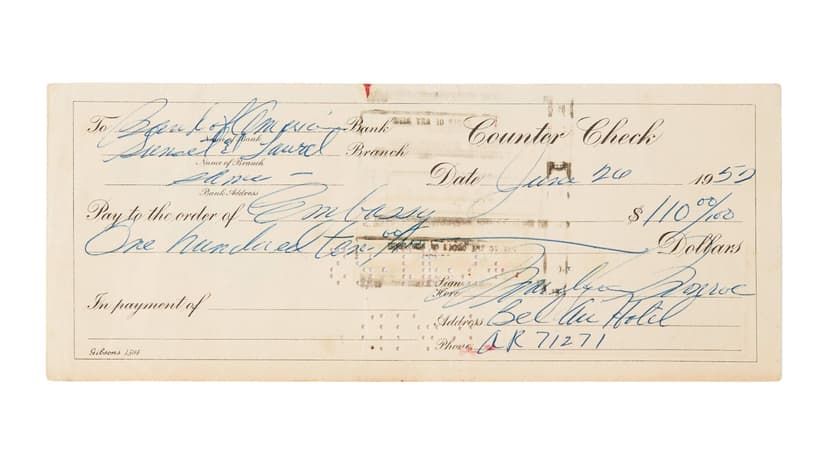 To Bank of America Bank Counter Check
Name of Bank
Sunset & Laurel Branch
Name of Branch
same - Date June 26 1952
Bank Address
Pay to the order of Embassy $ 110 00/100
One hundred ten 00/ Dollars
Sign Here Marilyn Monroe
In payment of
Address Bel Air Hotel
Gibsons 1501 Phone AR 71271